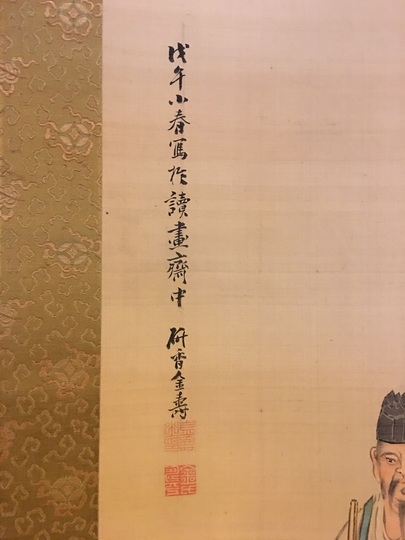 戊午小春寫於讀畫齋中 研香金壽